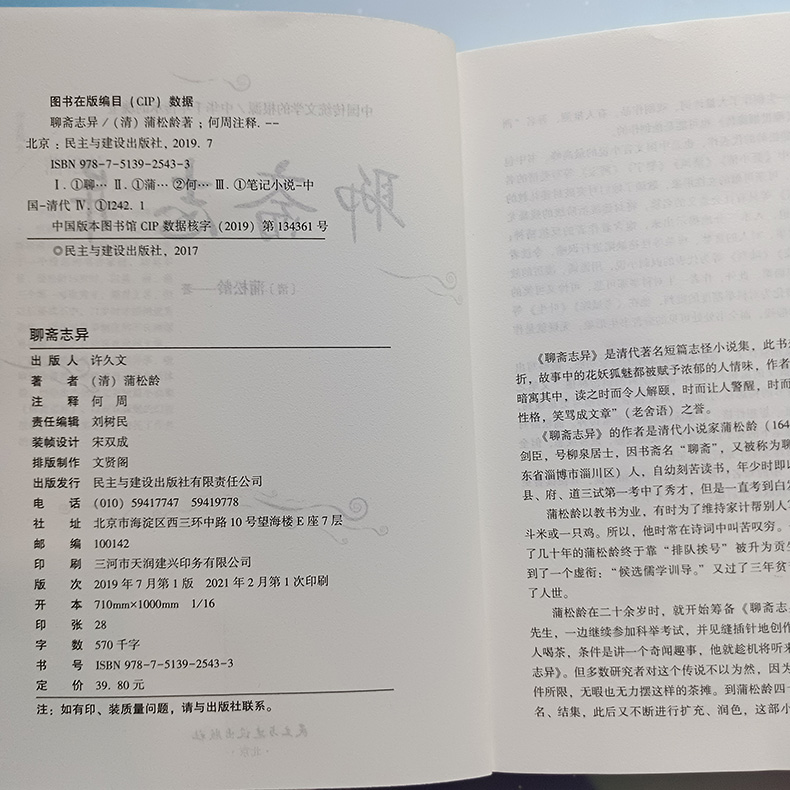 图书在版编目（CIP）数据
聊斋志异 /（清）蒲松龄著；何周注释. --
北京：民主与建设出版社，2019. 7
ISBN 978-7-5139-2543-3
Ⅰ. ①聊… Ⅱ. ①蒲… ②何… Ⅲ. ①笔记小说-中
国-清代 Ⅳ. ①I242. 1
中国版本图书馆 CIP 数据核字（2019）第 134361 号
◎民主与建设出版社，2017
聊斋志异
出 版 人 许久文
著 者 （清）蒲松龄
注 释 何 周
责任编辑 刘树民
装帧设计 宋双成
排版制作 文贤阁
出版发行 民主与建设出版社有限责任公司
电 话 （010）59417747 59419778
社 址 北京市海淀区西三环中路 10 号望海楼 E 座 7 层
邮 编 100142
印 刷 三河市天润建兴印务有限公司
版 次 2019 年 7 月第 1 版 2021 年 2 月第 1 次印刷
开 本 710mm×1000mm 1/16
印 张 28
字 数 570 千字
书 号 ISBN 978-7-5139-2543-3
定 价 39. 80 元
注：如有印、装质量问题，请与出版社联系。
《聊斋志异》是清代著名短篇志怪小说集，此书
折，故事中的花妖狐魅都被赋予浓郁的人情味，作者
暗寓其中，读之时而令人解颐，时而让人警醒，时而
性格，笑骂成文章”（老舍语）之誉。
《聊斋志异》的作者是清代小说家蒲松龄（164
剑臣，号柳泉居士，因书斋名“聊斋”，又被称为聊
东省淄博市淄川区）人，自幼刻苦读书，年少时即以
县、府、道三试第一考中了秀才，但是一直考到白
蒲松龄以教书为业，有时为了维持家计帮别人
斗米或一只鸡。所以，他时常在诗词中叫苦叹穷。
了几十年的蒲松龄终于靠“排队挨号”被升为贡
到了一个虚衔：“候选儒学训导。”又过了三年贫
了人世。
蒲松龄在二十余岁时，就开始筹备《聊斋志
先生，一边继续参加科举考试，并见缝插针地创作
人喝茶，条件是讲一个奇闻趣事，他就趁机将听来
志异》。但多数研究者对这个传说不以为然，因为
件所限，无暇也无力摆这样的茶摊。到蒲松龄四十
名、结集，此后又不断进行扩充、润色，这部小